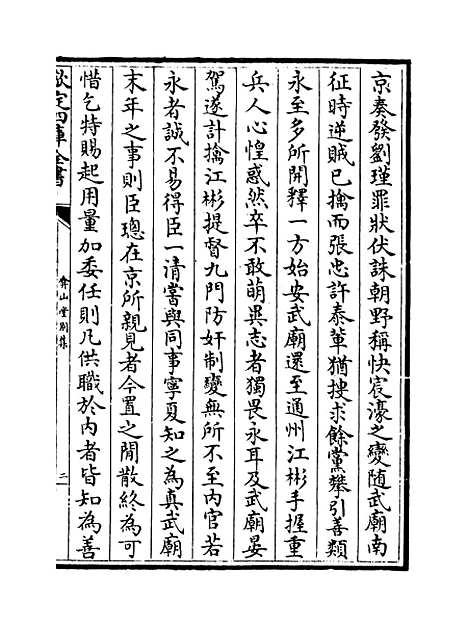 京奏發劉瑾罪狀伏誅朝野稱快宸濠之變随武廟南
征時逆賊已擒而張忠許泰軰猶搜求餘黨攀引善類
永至多所開釋一方始安武廟還至通州江彬手握重
兵人心惶惑然卒不敢萌異志者獨畏永耳及武廟晏
駕遂計擒江彬提督九門防奸制變無所不至内官若
永者誠不易得臣一清嘗與同事寧夏知之為真武廟
末年之事則臣璁在京所親見者今置之閒散終為可
惜乞特賜起用量加委任則凡供職於内者皆知為善
欽定四庫全書
弇山堂别集
三